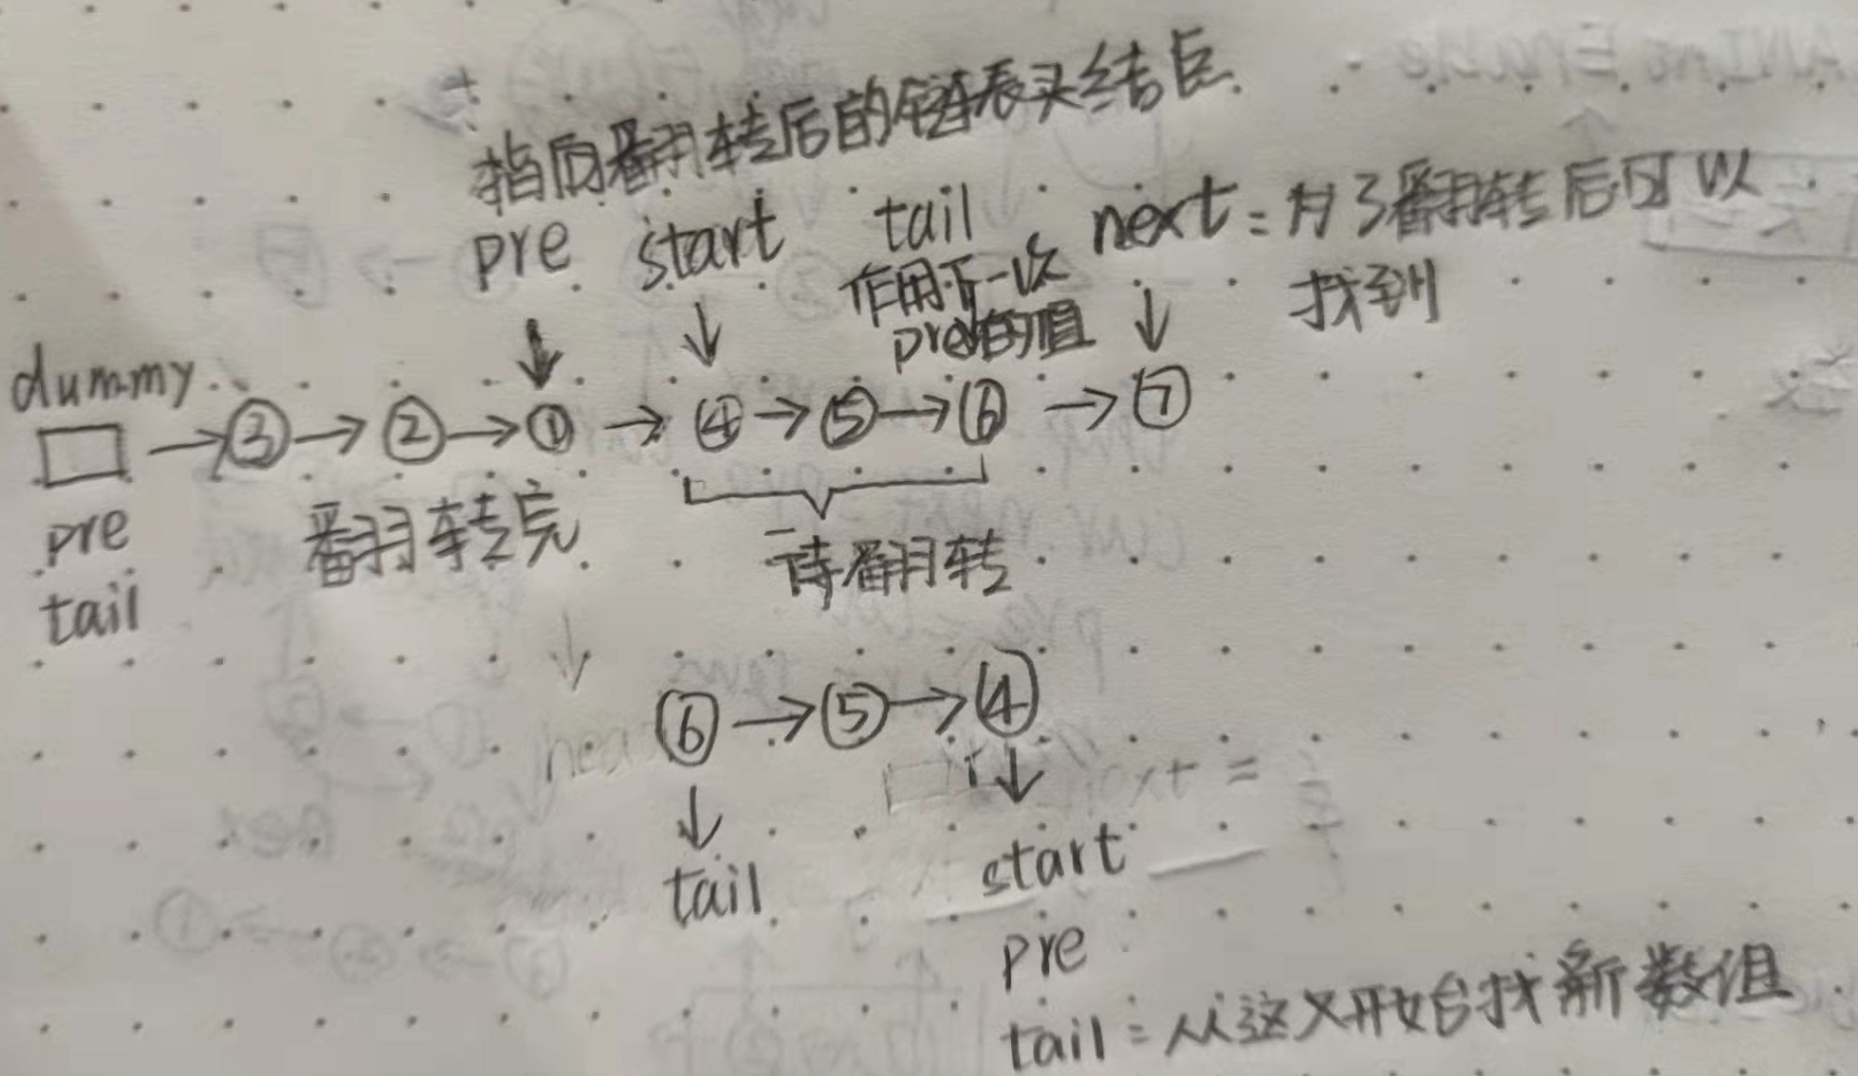 指向翻转后的链表头结点
pre start tail next: 为了翻转后可以
作用下一次 找到
pre的值
dummy
③ → ② → ① → ④ → ⑤ → ⑥ → ⑦
pre 翻转完
tail 待翻转
⑥ → ⑤ → ④
tail start
pre
tail: 从这又开始找新数组